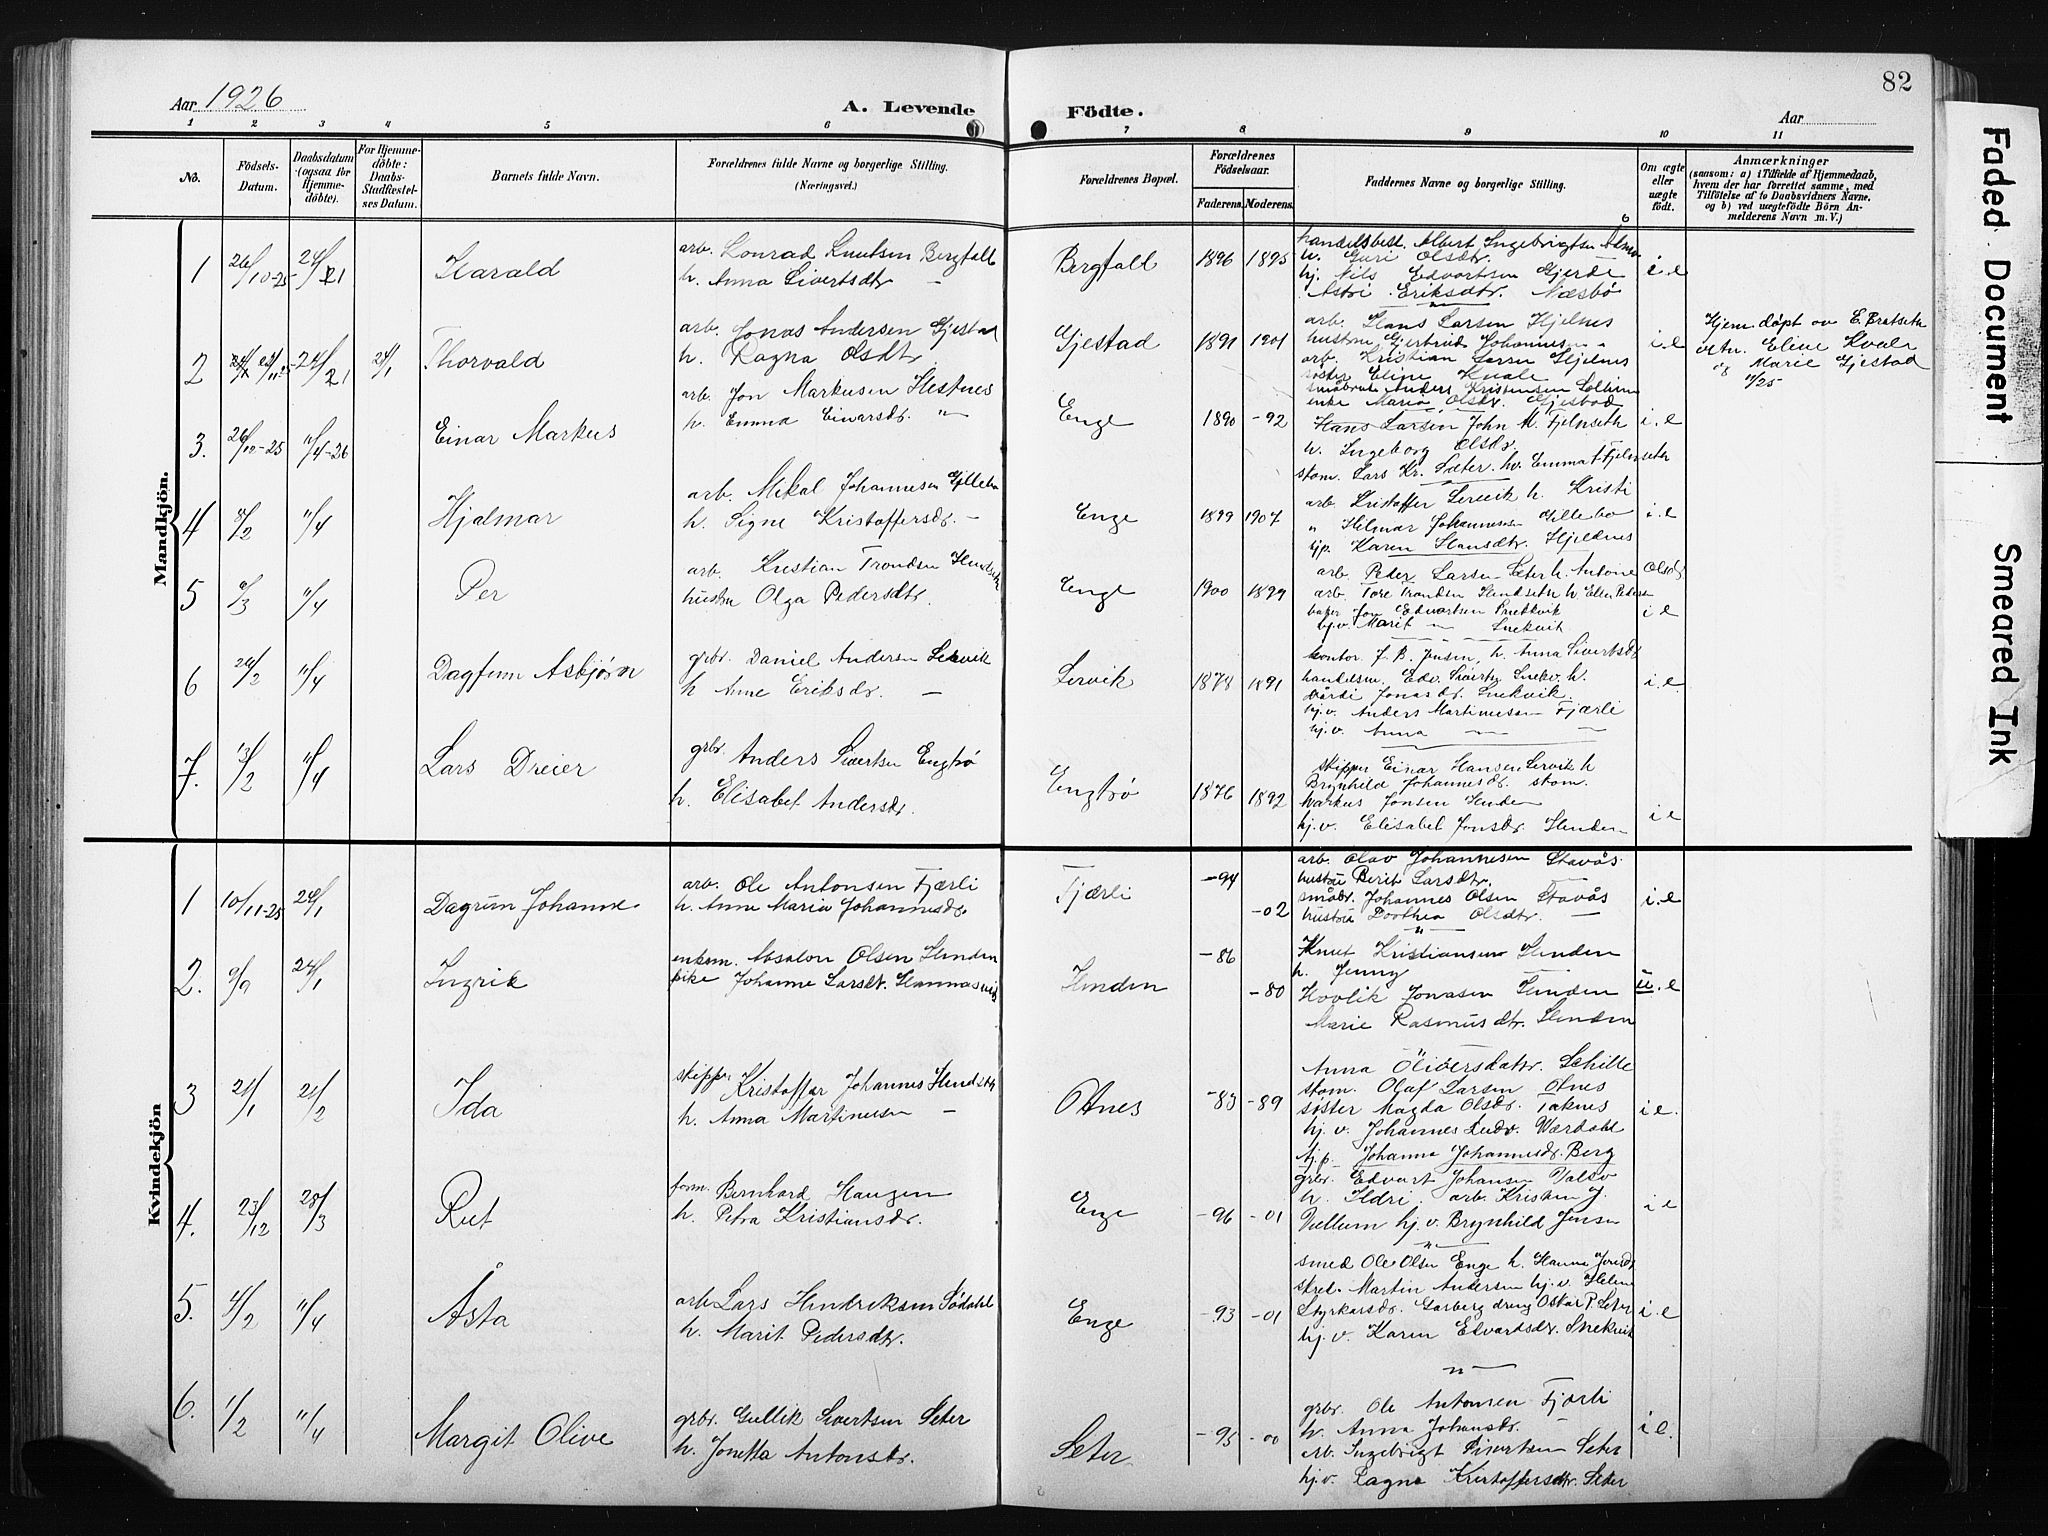 82
Aar 1926
A. Levende
Födte.
Aar
1 2 3 4 5 6 7 8 9 10 11
No.
Födsels-Datum.
Daabsdatum (ogsaa for Hjemme-döbte).
For Hjemme-döbte: Daabs-Stadfæstel-ses Datum.
Barnets fulde Navn.
Forældrenes fulde Navne og borgerlige Stilling.
(Næringsvei.)
Forældrenes Bopæl.
Forældrenes Födselsaar.
Faderens. Moderens.
Faddernes Navne og borgerlige Stilling.
Om ægte eller uægte födt.
Anmærkninger
(saasom: a) i Tilfælde af Hjemmedaab, hvem der har forrettet samme, med Tilföielse af to Daabsvidners Navne, og b) ved uægtefödte Börn Anmelderens Navn m. V.)
Mandkjön.
1 26/10-25 24/1 Harald
arb. Konrad Knutsen Bergfall
h. Anna Sivertsdtr —
Bergfall 1896 1895
handelsbest. Albert Ingebrigtsen
h. Guri Olsdtr.
hj. Nils Edvartsen Gjerde
Astri Eriksdtr. Næsbø
i.e
2 24/1 24/1 Thorvald
arb. Jonas Andersen Gjestad
h. Ragna Olsdtr
Gjestad 1891 1901
arb. Hans Larsen Hjelnes
hustru Gjertrud Johannesen
arb. Kristian Larsen Hjelnes
søster Eline Kvale
småbruk. Anders Kristensen
enke Maria Olsdr. Gjestad
i.e
Hjem. døpt av E. Bratseth
vitn. Eline Kvale
og Marie Gjestad
3. 26/12-25 11/4-26 Einar Markus
arb. Jon Markusen Hestnes
h. Emma Einarsdr. "
Enge 1890 -92
Hans Larsen John M. Fjelnseth
h. Ingeborg Olsdr.
stom. Lars Kr. Sæter. hv. Emma
i.e
4 8/2 11/4 Hjalmar
arb. Mikal Johannesen Gjillebo
h. Signe Kristoffersdr. —
Enge 1899 1907
arb. Kristoffer Lervik h. Kristi
" Hilmar Johannesen Gjillebo
hjp. Karen Hansdtr. Hjeldnes
i.e
5 9/3 11/4 Per
arb. Kristian Trondsen Hendset
hustru Olga Pedersdtr.
Enge 1900 1899
arb. Peder Larsen Seter h. Antoine Olsdr
arb. Tore Trondsen Hendseth h. Ellen Peders
baker Jon Edvartsen Snekkvik
hj.v. Marit — Snekvik
i e
6 24/2 11/4 Dagfinn Asbjørn
grbr. Daniel Andersen Lervik
h Anne Eriksdr. —
Lervik 1878 1891
kontor. J. B. Jensen, h. Anna Sivertsdr
handelsm. Edv. Sivertsen Snekv. h.
Vårdi Jonasdr. Snekvik.
hj.v. Anders Martinussen Fjærli
hj.v. Anna — —
i.e.
7. 13/2 11/4 Lars Dreier
grbr. Anders Sivertsen Engtrø
h. Elisabet Andersdr.
Engtrø 1876 1892
skipper Einar Hansen Lervik h
Brynhild Johannesdr. stom.
Markus Jonsen Henden
hj.v. Elisabet Jonsdr. Henden
i e
Kvindekjön
1 10/11-25 24/1 Dagrun Johanne
arb. Ole Antonsen Fjærli
h. Anne Marie Johannesdr.
Fjærli -94 -02
arb. Olav Johannesen Stavås
hustru Berit Larsdtr. —
småbr. Johannes Olsen Stavås
hustru Dorthea Olsdtr. —
i.e
2. 9/9 24/1 Ingrid
enkem. Absalon Olsen Henden
pike Johanne Larsdt. Hannasvik
Henden -86 -80
Knut Kristiansen Henden
h. Jenny —
Hovlik Jonasen Henden
Marie Rasmusdtr. Henden
u.e
3 21/1 21/2 Ida
skipper Kristoffer Johannes Hendset
h. Anna Martinusen —
Otnes -83 -89
Anna Oliversdatr. Schille
stom. Olaf Larsen Otnes
søster Magda Olsdr. Taknes
hj.v. Johannes Ludv. Wærdahl
hj.p. Johanna Johannesdr. Berg
i e.
4. 23/12 28/3 Rut
form. Bernhard Haugen
h. Petra Kristiansdr.
Enge -96 -01
grbr. Edvart Johansen Valsø
h. Ildri. arb. Kristen J.
Vullum hj.v. Brynhild Jensen
i e
5. 4/2 11/4 Åsta
arb Lars Hendriksen Sødahl
h. Marit Pedersdtr.
Enge -93 -01
smed Ole Olsen Enge h. Hanna
skred. Martin Andersen hj.v. Helene
Styrkarsdr. Garberg dreng Oskar P. Seter
hj.v. Karen Edvartsdr. Snekvik
i.e
6. 1/2 11/4 Margit Olive
grbr. Gullik Sivertsen Seter
h. Jonetta Antonsdr.
Seter. -95 -00
grbr. Ole Antonsen Fjærli
h. Anna Johansdr. —
arb. Ingebrigt Sivertsen Seter
hj.v. Ragna Kristoffersdtr. Seter
i e.
Faded Document
Smeared Ink